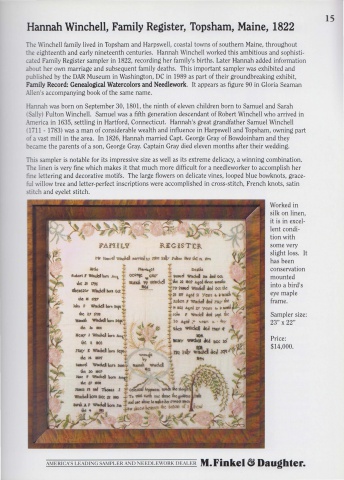 15
Hannah Winchell, Family Register, Topsham, Maine, 1822
The Winchell family lived in Topsham and Harpswell, coastal towns of southern Maine, throughout
the eighteenth and early nineteenth centuries. Hannah Winchell worked this ambitious and sophisti-
cated Family Register sampler in 1822, recording her family's births. Later Hannah added information
about her own marriage and subsequent family deaths. This important sampler was exhibited and
published by the DAR Museum in Washington, DC in 1989 as part of their groundbreaking exhibit,
Family Record: Genealogical Watercolors and Needlework. It appears as figure 90 in Gloria Seaman
Allen's accompanying book of the same name.
Hannah was born on September 30, 1801, the ninth of eleven children born to Samuel and Sarah
(Sally) Fulton Winchell. Samuel was a fifth generation descendant of Robert Winchell who arrived in
America in 1635, settling in Hartford, Connecticut. Hannah's great grandfather Samuel Winchell
(1711 - 1783) was a man of considerable wealth and influence in Harpswell and Topsham, owning part
of a vast mill in the area. In 1826, Hannah married Capt. George Gray of Bowdoinham and they
became the parents of a son, George Gray. Captain Gray died eleven months after their wedding.
This sampler is notable for its impressive size as well as its extreme delicacy, a winning combination.
The linen is very fine which makes it that much more difficult for a needleworker to accomplish her
fine lettering and decorative motifs. The large flowers on delicate vines, looped blue bowknots, grace-
ful willow tree and letter-perfect inscriptions were accomplished in cross-stitch, French knots, satin
stitch and eyelet stitch.
Worked in
silk on linen,
it is in excel-
lent condi-
tion with
some very
slight loss. It
has been
conservation
mounted
into a bird's
eye maple
frame.
Sampler size:
23" x 22"
Price:
$14,000.
FAMILY REGISTER
AMERICA'S LEADING SAMPLER AND NEEDLEWORK DEALER M. Finkel & Daughter.